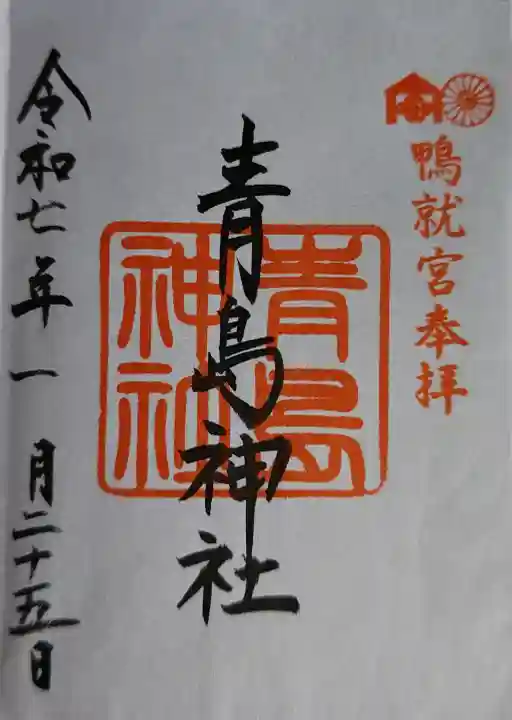 鴨就宮奉拝
青島神社
青島神社
令和七年一月二十五日